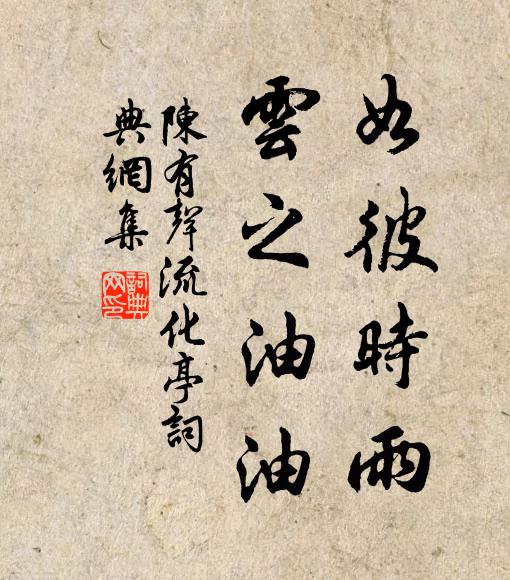 如彼時雨
雲之油油
陳有聲流化亭詞
典網集
詞典網印